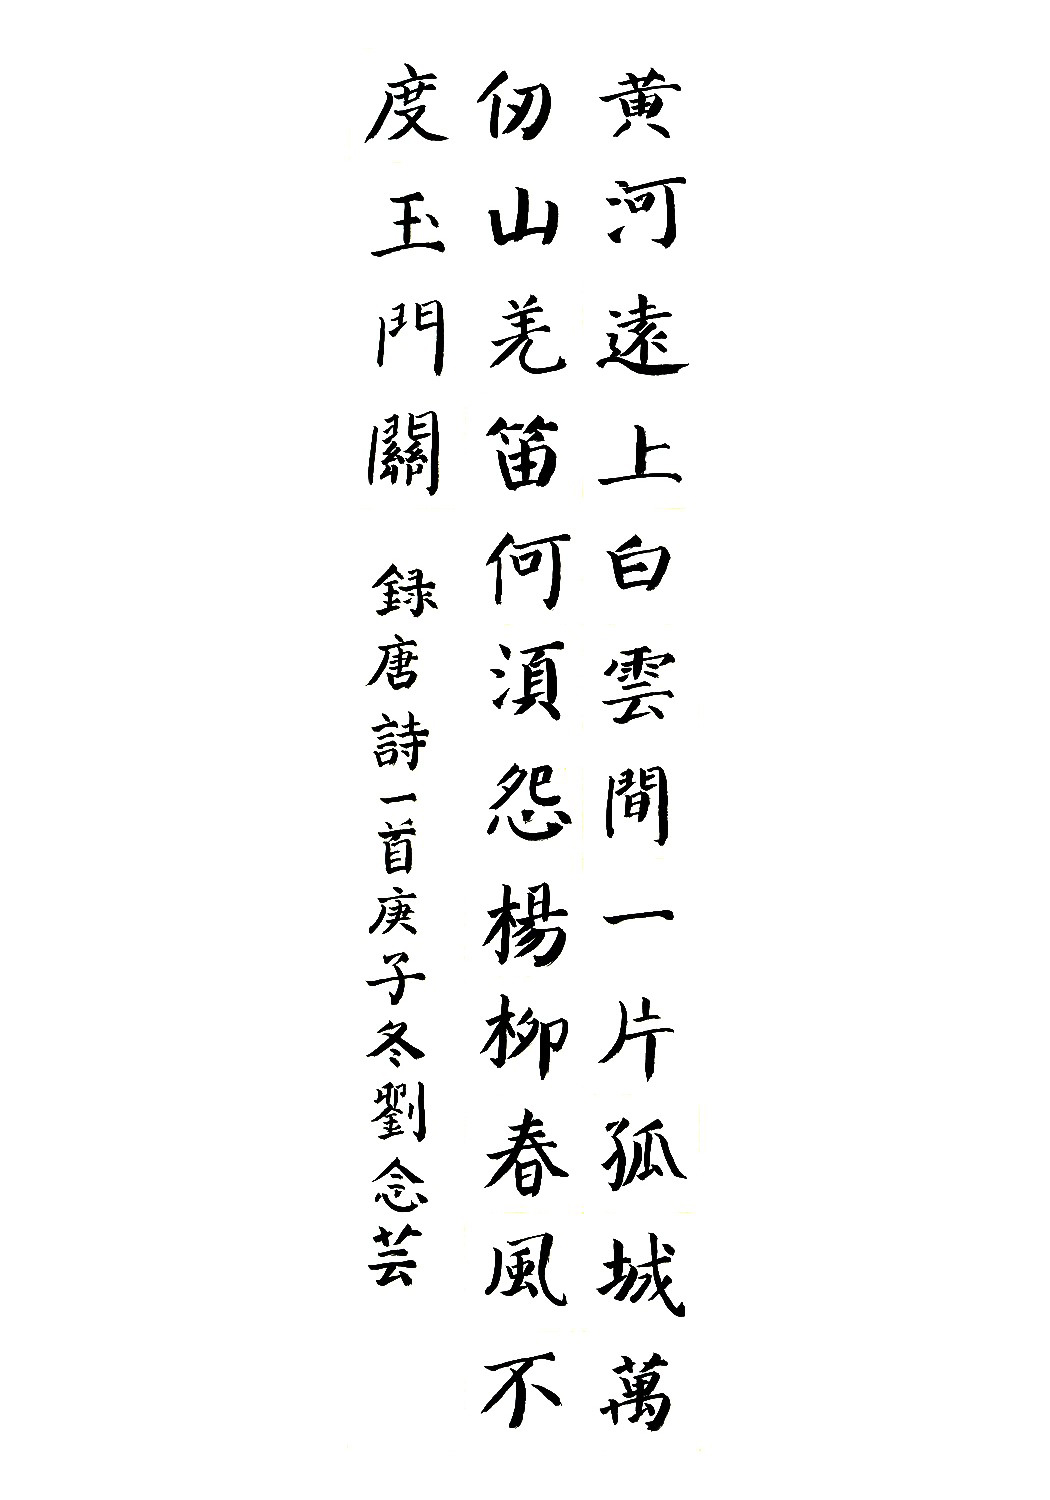 黄河遠上白雲間一片孤城萬
仞山羌笛何湏怨楊柳春風不
度玉門關 録唐詩一首庚子冬劉念芸